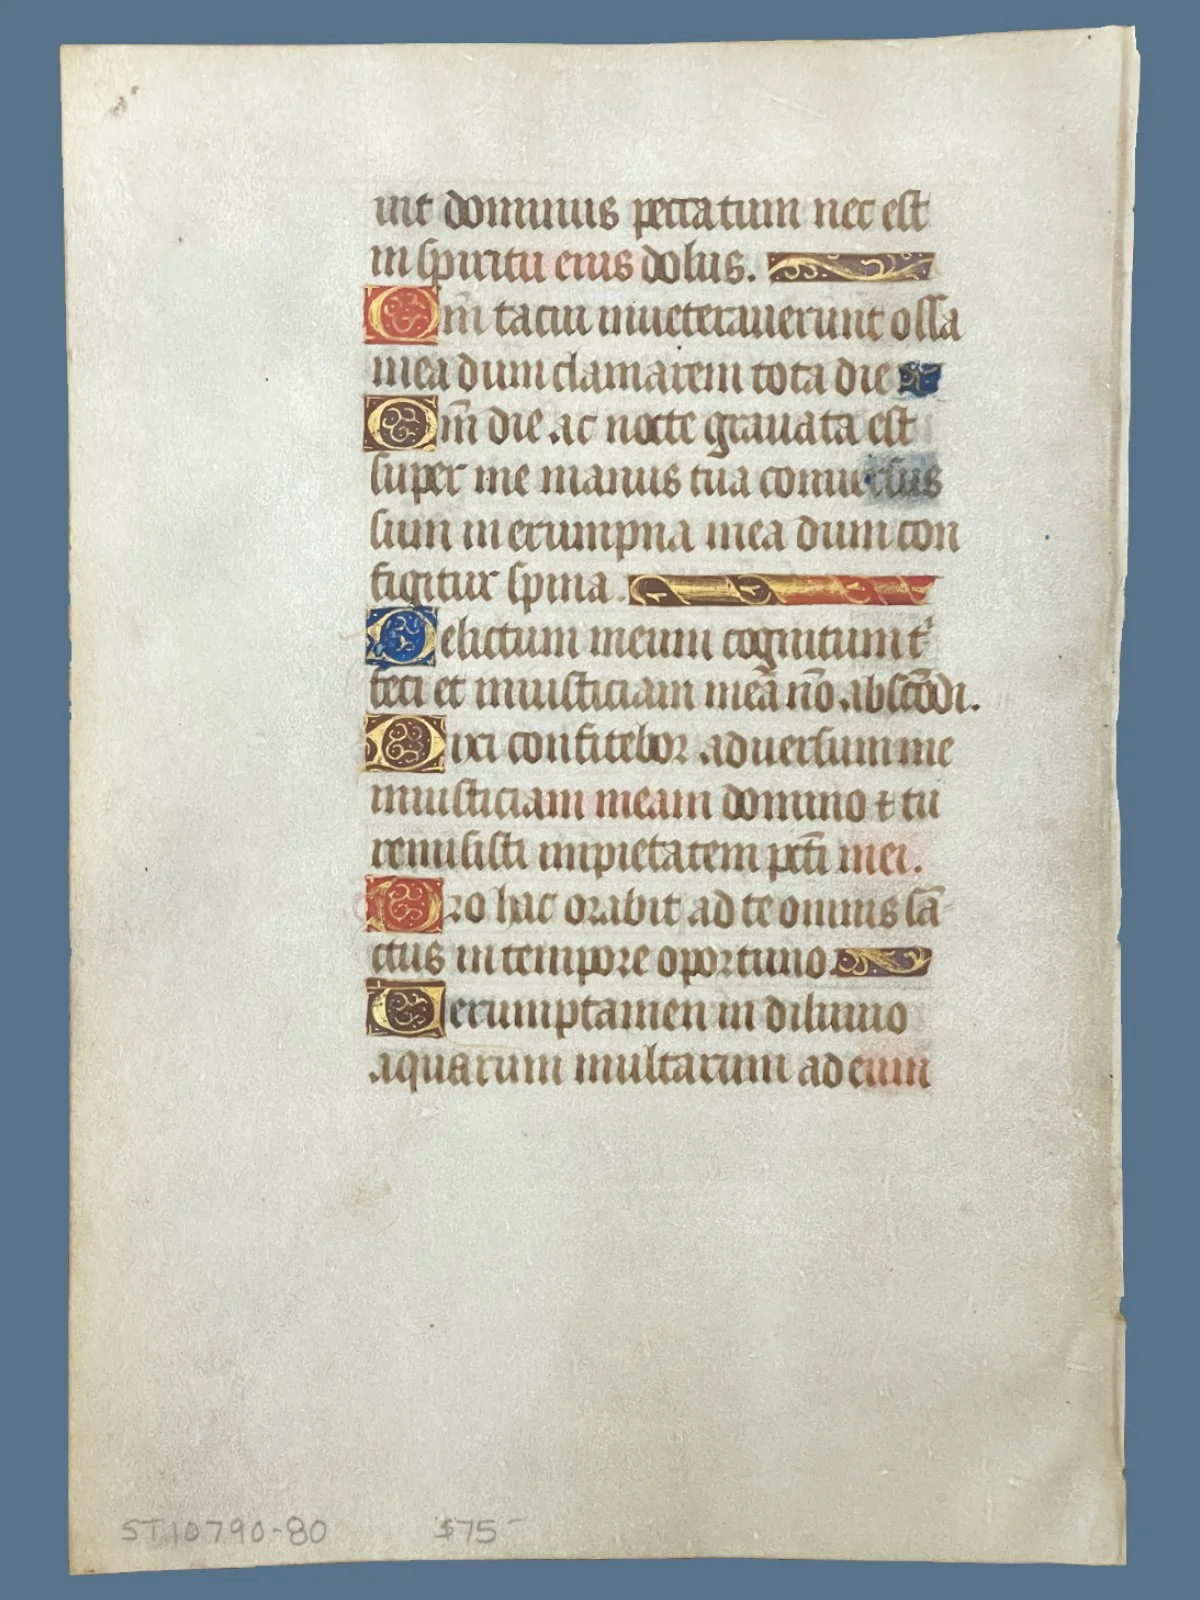 uit dominus peccatum nec est
in spiritu eius dolus.
Qm̄ tacui inueterauerunt ossa
mea dum clamarem tota die
Qm̄ die ac nocte grauata est
super me manus tua conuersus
sum in erumpna mea dum con
figitur spina.
Delictum meum cognitum t
feci et iniusticiam meā nō abscōdi.
Dixi confitebor aduersum me
iniusticiam meam domino ⁊ tu
remisisti impietatem pctī mei.
Pro hac orabit ad te omnis sā
ctus in tempore oportuno.
Uerumptamen in diluuio
aquarum multarum ad eum
ST10790-80 $75-